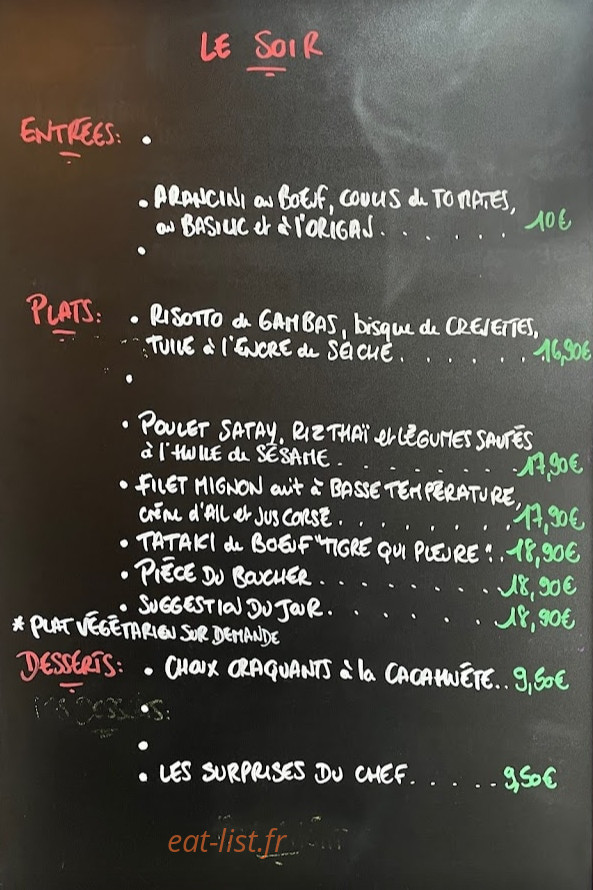 LE SOIR
ENTRÉES:
• ARANCINI au BOEUF, COULIS de TOMATES,
au BASILIC et à l'ORIGAN. . . . . . 10€
PLATS: • RISOTTO de GAMBAS, bisque de CREVETTES,
TUILE à l'ENCRE de SEICHE. . . . . . 16,90€
• POULET SATAY, RIZ THAÏ et LÉGUMES SAUTÉS
à l'HUILE de SÉSAME. . . . . . . . 17,90€
• FILET MIGNON cuit à BASSE TEMPÉRATURE,
crème d'AIL et JUS CORSÉ. . . . . . . 17,90€
• TATAKI de BOEUF "TIGRE QUI PLEURE". . 18,90€
• PIÈCE DU BOUCHER. . . . . . . . . 18,90€
• SUGGESTION DU JOUR. . . . . . . 18,90€
* PLAT VÉGÉTARIEN SUR DEMANDE
DESSERTS: • CHOUX CRAQUANTS à la CACAHUÈTE.. 9,50€
• LES SURPRISES DU CHEF. . . . . . 9,50€
eat-list.fr